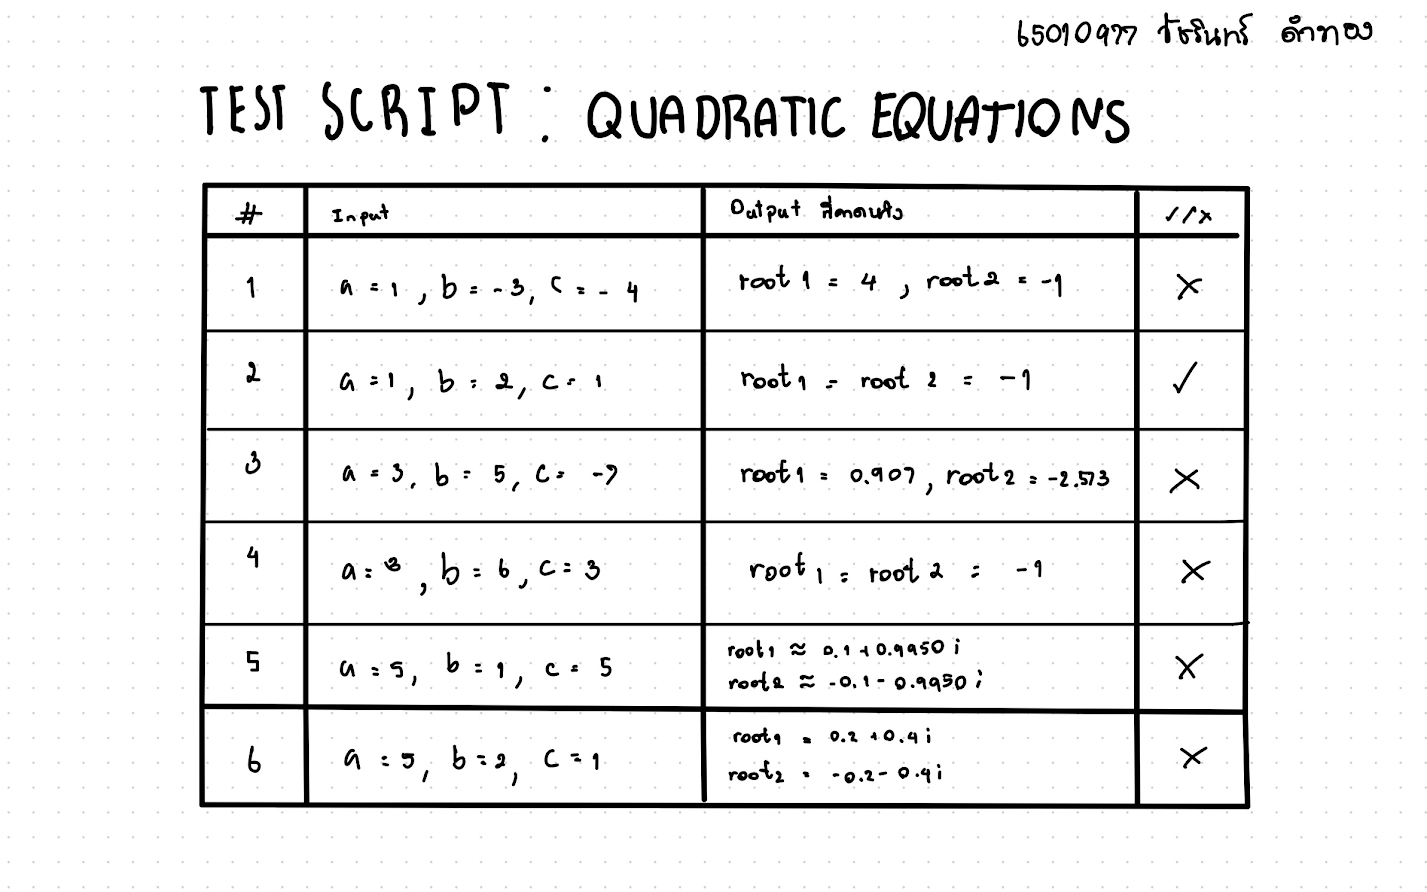 65010977 วัชรินทร์ ดำทอง
TEST SCRIPT : QUADRATIC EQUATIONS
# Input Output ที่คาดหวัง ✓/x
1 a = 1 , b = -3, c = -4 root 1 = 4 , root 2 = -1 ×
2 a = 1, b = 2, c = 1 root 1 = root 2 = -1 ✓
3 a = 3, b = 5, c = -7 root 1 = 0.907, root 2 = -2.573 ×
4 a = 3 , b = 6, c = 3 root 1 = root 2 = -1 ×
5 a = 5, b = 1, c = 5 root1 ≈ 0.1 + 0.9950 i
root2 ≈ -0.1 - 0.9950 i ×
6 a = 5, b = 2, c = 1 root1 = 0.2 + 0.4 i
root2 = -0.2 - 0.4 i ×